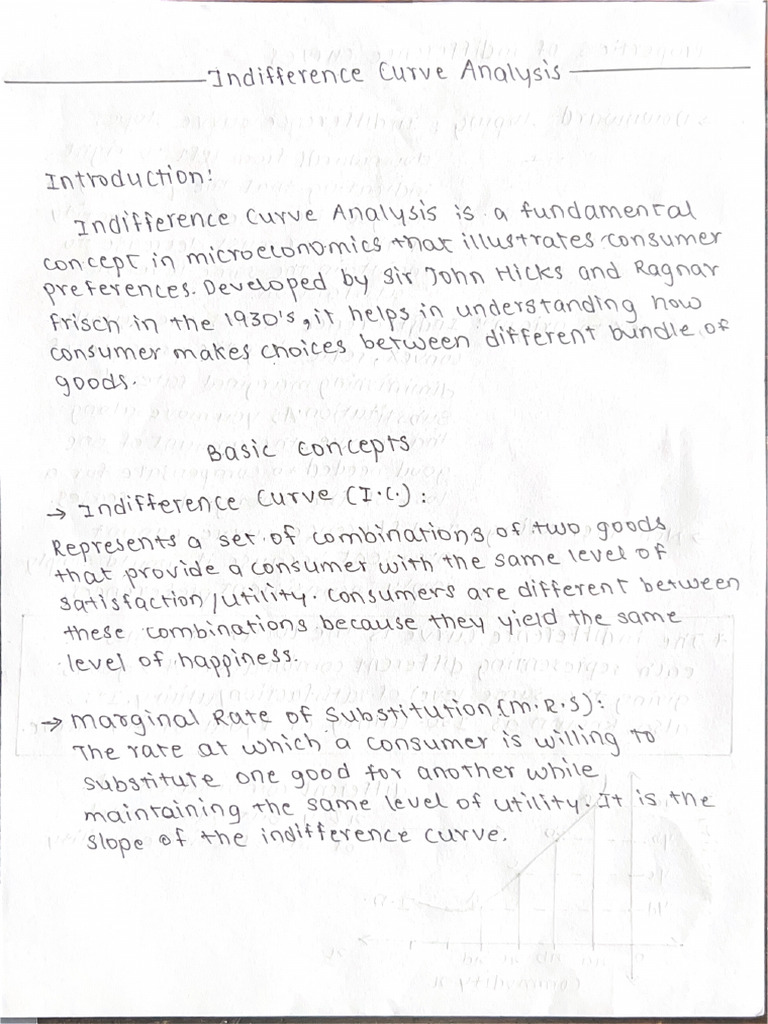 Indifference Curve Analysis
Introduction:
Indifference Curve Analysis is a fundamental
concept in microeconomics that illustrates consumer
preferences. Developed by Sir John Hicks and Ragnar
Frisch in the 1930's, it helps in understanding how
consumer makes choices between different bundle of
goods.
Basic Concepts
→ Indifference Curve (I.C.):
Represents a set of combinations of two goods
that provide a consumer with the same level of
satisfaction/utility. Consumers are different between
these combinations because they yield the same
level of happiness.
→ Marginal Rate of Substitution (M.R.S):
The rate at which a consumer is willing to
substitute one good for another while
maintaining the same level of utility. It is the
slope of the indifference curve.